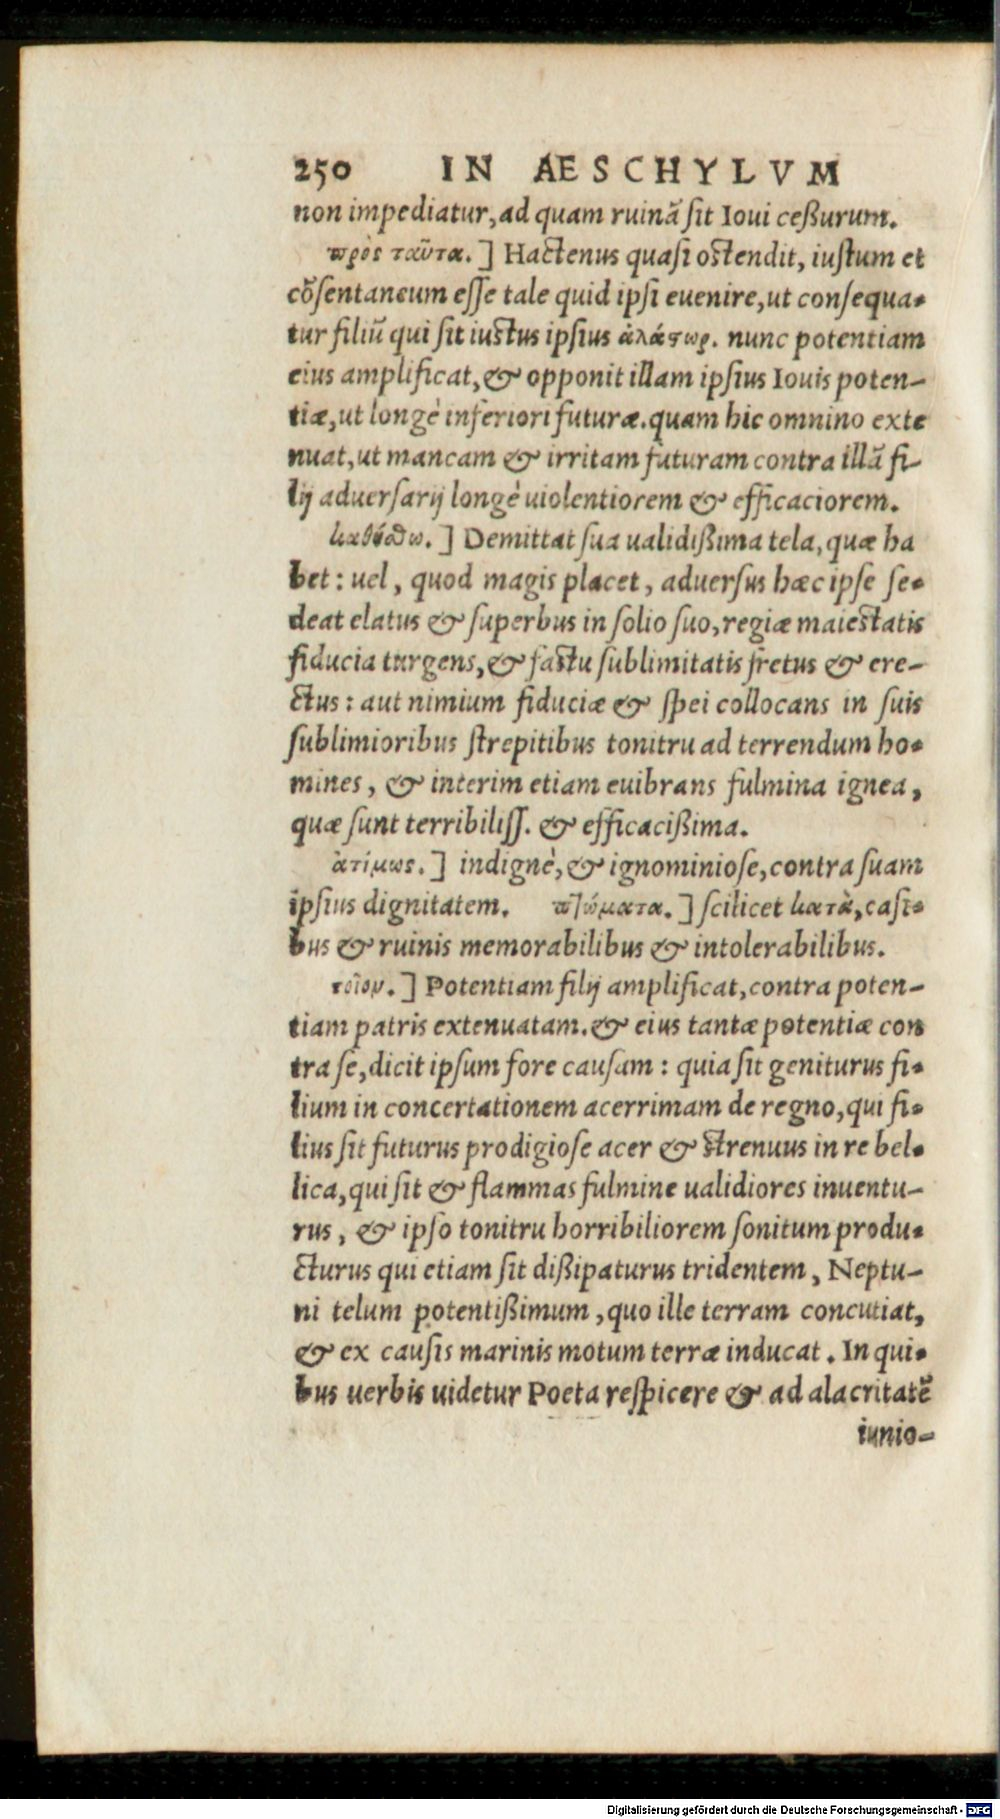 250 IN AESCHYLVM
non impediatur, ad quam ruinã sit Ioui ceßurum.
πρὸς ταῦτα.] Hactenus quasi ostendit, iustum et
cõsentaneum esse tale quid ipsi euenire, ut consequa-
tur filiũ qui sit iustus ipsius ἀλάστωρ. nunc potentiam
eius amplificat, & opponit illam ipsius Iouis poten-
tiæ, ut longè inferiori futuræ. quam hic omnino exte
nuat, ut mancam & irritam futuram contra illã fi-
lij aduersarij longè uiolentiorem & efficaciorem.
καθήσθω.] Demittat sua ualidißima tela, quæ ha
bet: uel, quod magis placet, aduersus hæc ipse se-
deat elatus & superbus in solio suo, regiæ maiestatis
fiducia turgens, & fastu sublimitatis fretus & ere-
ctus: aut nimium fiduciæ & spei collocans in suis
sublimioribus strepitibus tonitru ad terrendum ho-
mines, & interim etiam euibrans fulmina ignea,
quæ sunt terribiliss. & efficacißima.
ἀτίμως.] indignè, & ignominiose, contra suam
ipsius dignitatem. πτώματα.] scilicet κατὰ, casi-
bus & ruinis memorabilibus & intolerabilibus.
τοῖον.] Potentiam filij amplificat, contra poten-
tiam patris extenuatam. & eius tantæ potentiæ con
tra se, dicit ipsum fore causam: quia sit geniturus fi-
lium in concertationem acerrimam de regno, qui fi-
lius sit futurus prodigiose acer & strenuus in re bel-
lica, qui sit & flammas fulmine ualidiores inuentu-
rus, & ipso tonitru horribiliorem sonitum produ-
cturus qui etiam sit dißipaturus tridentem, Neptu-
ni telum potentißimum, quo ille terram concutiat,
& ex causis marinis motum terræ inducat. In qui-
bus uerbis uidetur Poeta respicere & ad alacritatẽ
iunio-
Digitalisierung gefördert durch die Deutsche Forschungsgemeinschaft - DFG